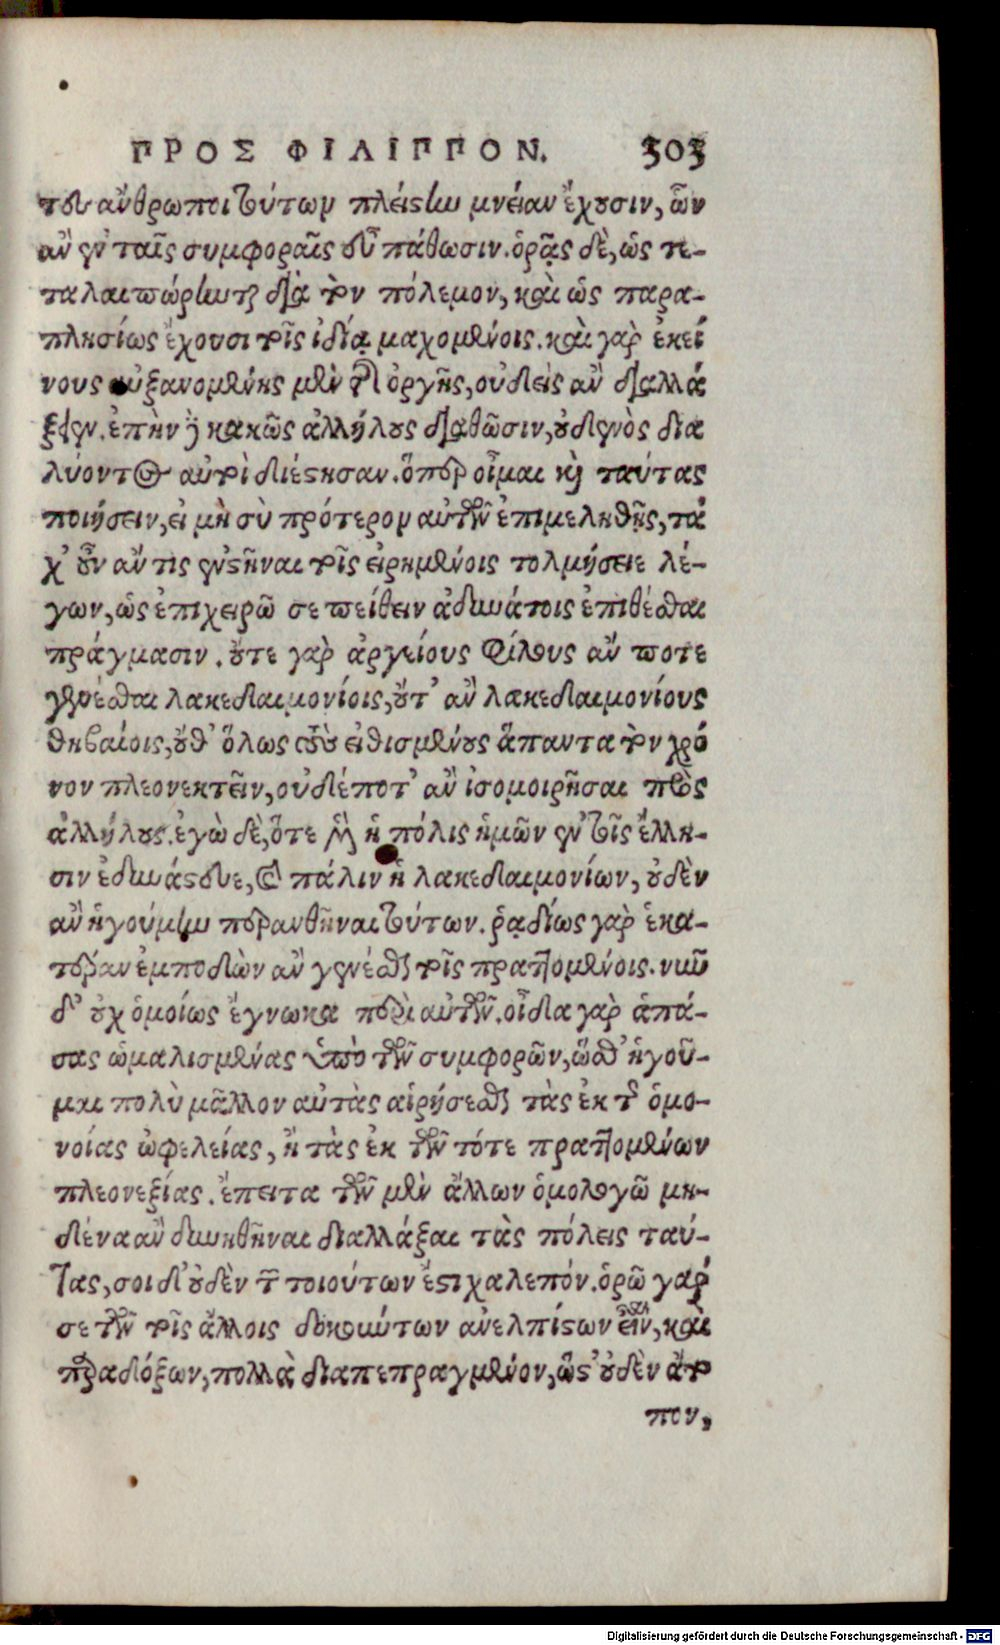 ΠΡΟΣ ΦΙΛΙΠΠΟΝ. 303
τες ἄνθρωποι τούτων πλείστην μνείαν ἔχουσιν, ὧν
ἂν ἐν ταῖς συμφοραῖς εὖ πάθωσιν. ὁρᾷς δὲ, ὡς τε-
ταλαιπώρηνται διὰ τὸν πόλεμον, καὶ ὡς παρα-
πλησίως ἔχουσι τοῖς ἰδίᾳ μαχομένοις. καὶ γὰρ ἐκεί
νους αὐξανομένης μὲν τῆς ὀργῆς, οὐδεὶς ἂν διαλλά
ξειεν. ἐπὴν δὲ κακῶς ἀλλήλους διαθῶσιν, οὐδενὸς δια
λύοντος αὐτοὶ διέστησαν. ὅπερ οἶμαι καὶ ταύτας
ποιήσειν, εἰ μὴ σὺ πρότερον αὐτῶν ἐπιμεληθῇς, τά
χ' οὖν ἄν τις ἐνστῆναι τοῖς εἰρημένοις τολμήσειε λέ-
γων, ὡς ἐπιχειρῶ σε πείθειν ἀδυνάτοις ἐπιθέσθαι
πράγμασιν. οὔτε γὰρ ἀργείους φίλους ἄν ποτε
γενέσθαι λακεδαιμονίοις, οὔτ' ἂν λακεδαιμονίους
θηβαίοις, οὔθ' ὅλως τοὺς εἰθισμένους ἅπαντα τὸν χρό
νον πλεονεκτεῖν, οὐδέποτ' ἂν ἰσομοιρῆσαι πρὸς
ἀλλήλους. ἐγὼ δὲ, ὅτε μὲν ἡ πόλις ἡμῶν ἐν τοῖς ἕλλη-
σιν ἐδυνάστευε, καὶ πάλιν ἡ λακεδαιμονίων, οὐδὲν
ἂν ἡγούμην περανθῆναι τούτων. ῥᾳδίως γὰρ ἑκα-
τέραν ἐμποδὼν ἂν γενέσθαι τοῖς πραττομένοις. νῦν
δ' οὐχ ὁμοίως ἔγνωκα περὶ αὐτῶν. οἶδα γὰρ ἁπά-
σας ὡμαλισμένας ὑπὸ τῶν συμφορῶν, ὥσθ' ἡγοῦ-
μαι πολὺ μᾶλλον αὐτὰς αἱρήσεσθαι τὰς ἐκ τῆς ὁμο-
νοίας ὠφελείας, ἢ τὰς ἐκ τῶν τότε πραττομένων
πλεονεξίας. ἔπειτα τῶν μὲν ἄλλων ὁμολογῶ μη-
δένα ἂν δυνηθῆναι διαλλάξαι τὰς πόλεις ταύ-
τας, σοι δ' οὐδὲν τῶν τοιούτων ἐστι χαλεπόν. ὁρῶ γάρ
σε τῶν τοῖς ἄλλοις δοκούντων ἀνελπίστων εἶναι, καὶ
παραδόξων, πολλὰ διαπεπραγμένον, ὥστ' οὐδὲν ἄτο
πον,
Digitalisierung gefördert durch die Deutsche Forschungsgemeinschaft - DFG